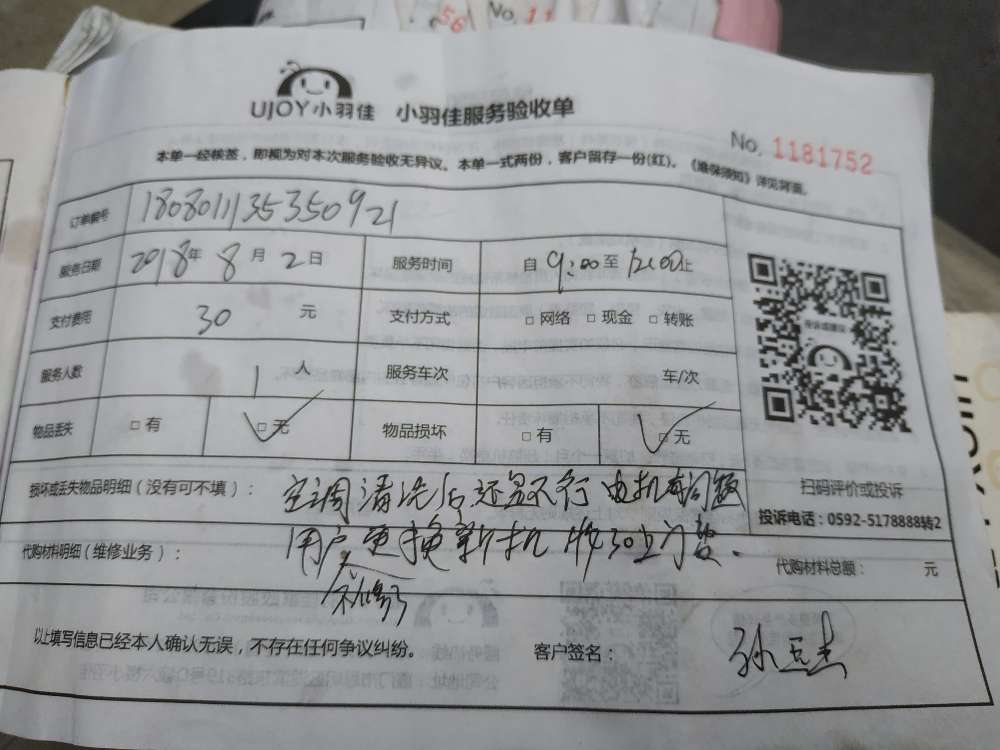 56 No. 11
UJOY小羽佳 小羽佳服务验收单
No. 1181752
本单一经核签，即视为对本次服务验收无异议。本单一式两份，客户留存一份(红)。《维保须知》详见背面。
订单编号 180801135350921
服务日期 2018年8月2日 服务时间 自9:00至12:00止
支付费用 30 元 支付方式 □网络 □现金 □转账
服务人数 1人 服务车次 车/次
物品丢失 □有 □无 物品损坏 □有 □无
投诉或建议
扫码评价或投诉
投诉电话：0592-5178888转2
损坏或丢失物品明细（没有可不填）： 空调清洗后还是不行 电机有问题
用户更换新机 收30上门费.
代购材料明细（维修业务）： 代购材料总额： 元
以上填写信息已经本人确认无误，不存在任何争议纠纷。 客户签名：